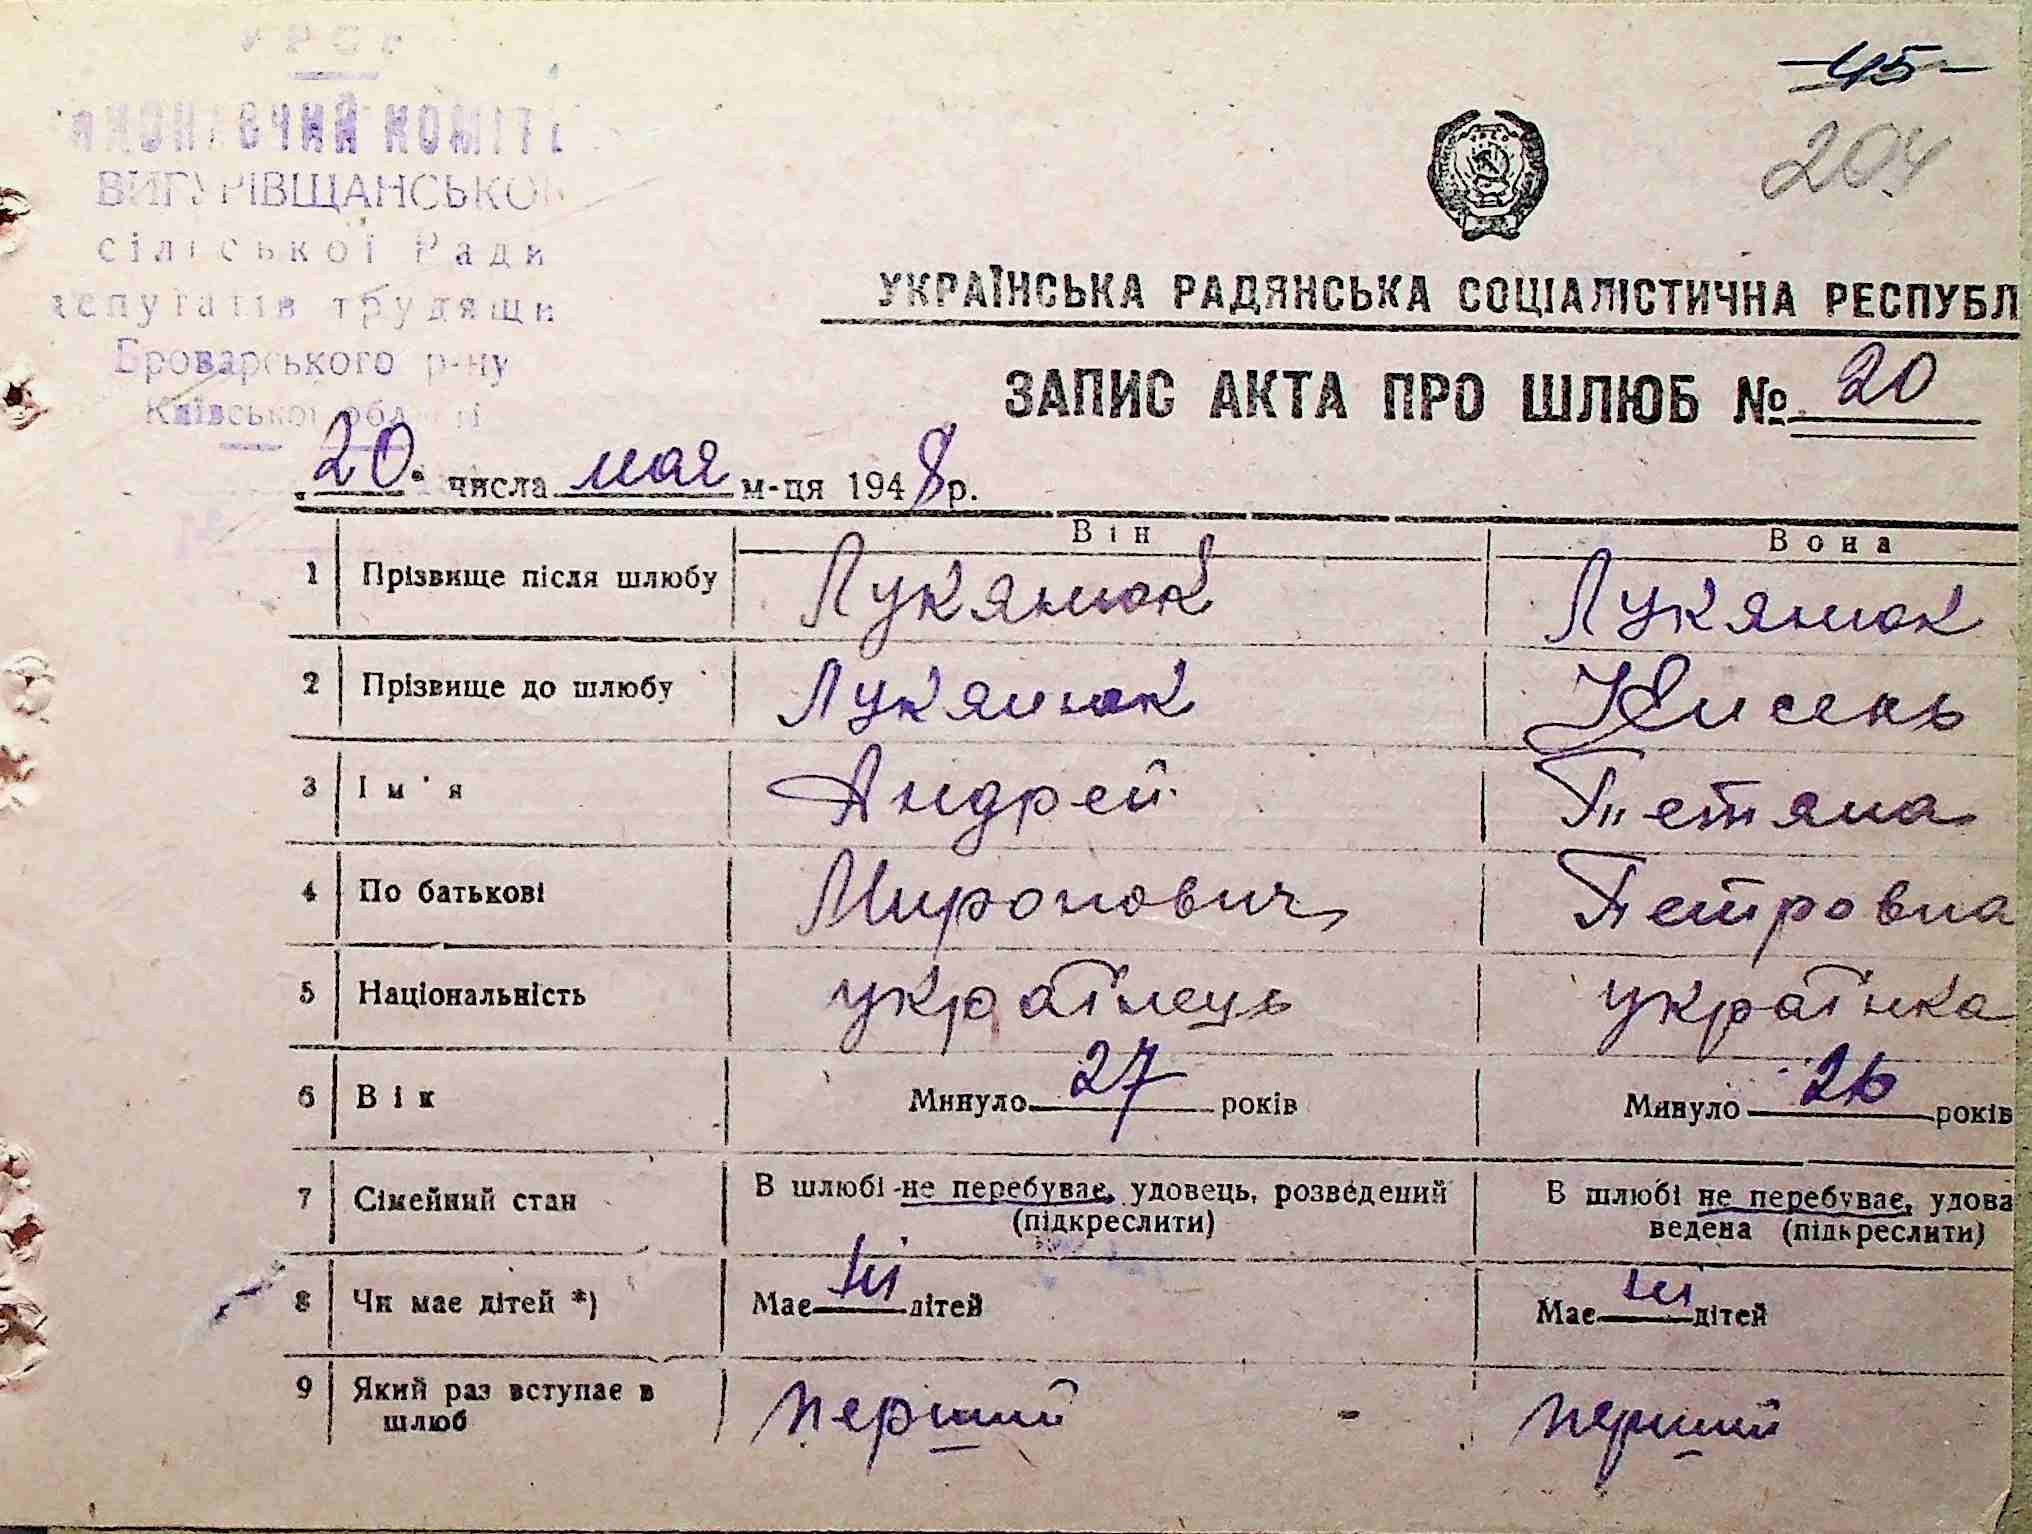 УРСР
ВИКОНАВЧИЙ КОМІТЕ
ВИГУРІВЩАНСЬКОЇ
сільської Ради
депутатів трудящи
Броварського р-ну
Київської області
45
204
УКРАЇНСЬКА РАДЯНСЬКА СОЦІАЛІСТИЧНА РЕСПУБЛ
ЗАПИС АКТА ПРО ШЛЮБ № 20
20 числа мая м-ця 1948 р.
Він Вона
1 Прізвище після шлюбу Лукянюк Лукянюк
2 Прізвище до шлюбу Лукянюк
3 Ім'я Андрей Тетяна
4 По батькові Миронович Петровна
5 Національність українець українка
6 Вік Минуло 27 років Минуло 26 років
7 Сімейний стан В шлюбі не перебуває, удовець, розведений В шлюбі не перебуває, удова
(підкреслити) ведена (підкреслити)
8 Чи має дітей *) Має ні дітей Має ні дітей
9 Який раз вступає в перший перший
шлюб